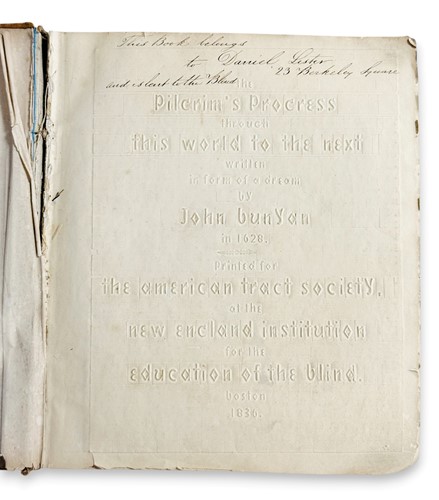 This Book belongs
to Daniel Lister
23 Berkeley Square
and is lent to the Blind.
the
Pilgrim's Progress
through
this world to the next
written
in form of a dream
by
John bunyan
in 1628.
Printed for
the american tract society.
at the
new england institution
for the
education of the blind.
boston
1836.